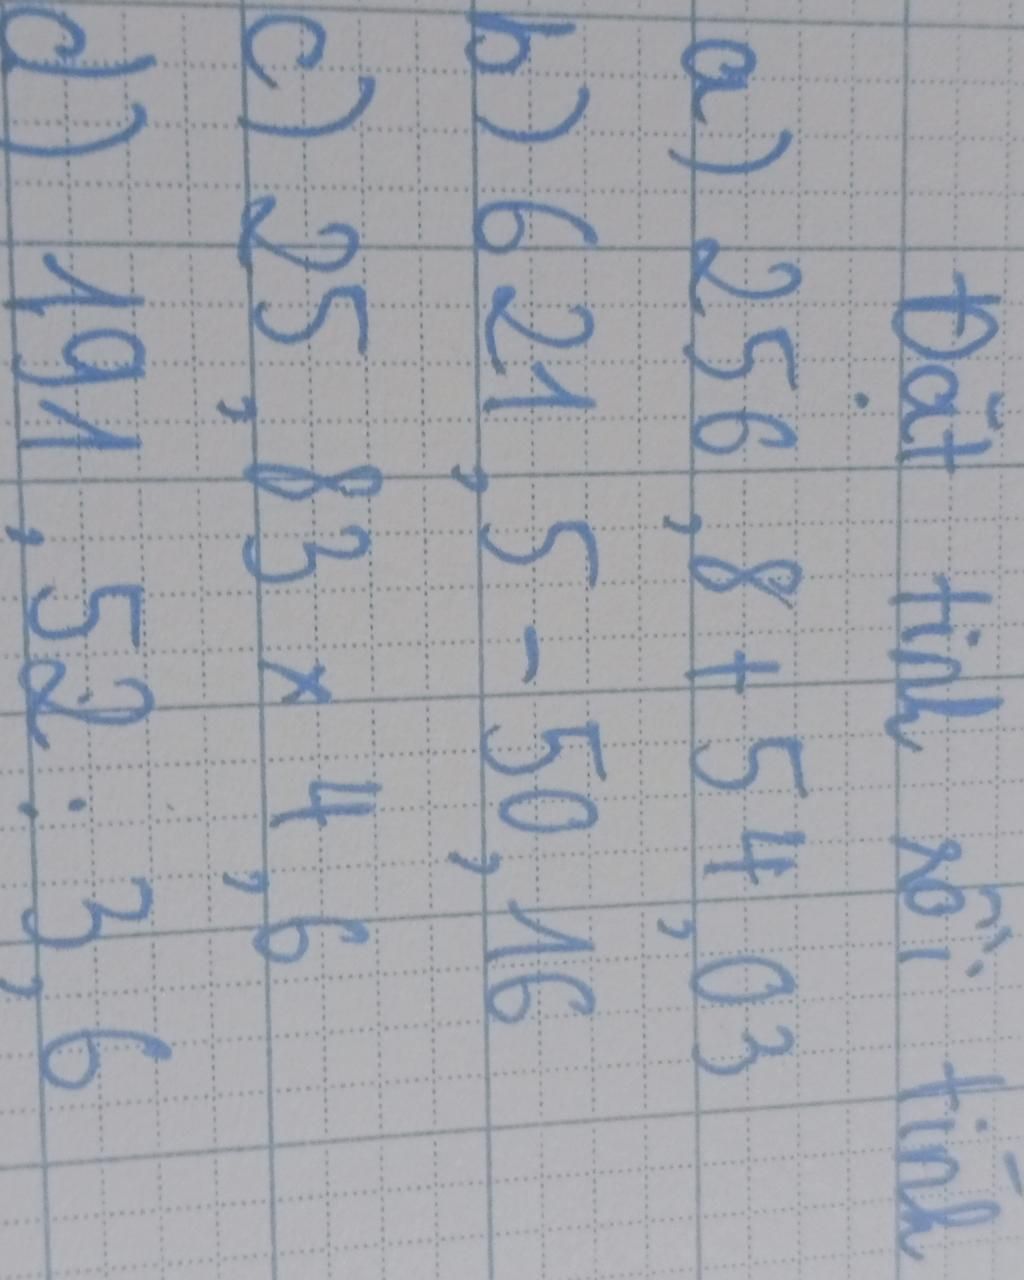 Đặt tính rồi tính
a) 256,8 + 54,03
b) 621,5 - 50,16
c) 25,83 x 4,6
d) 191,52 : 3,6